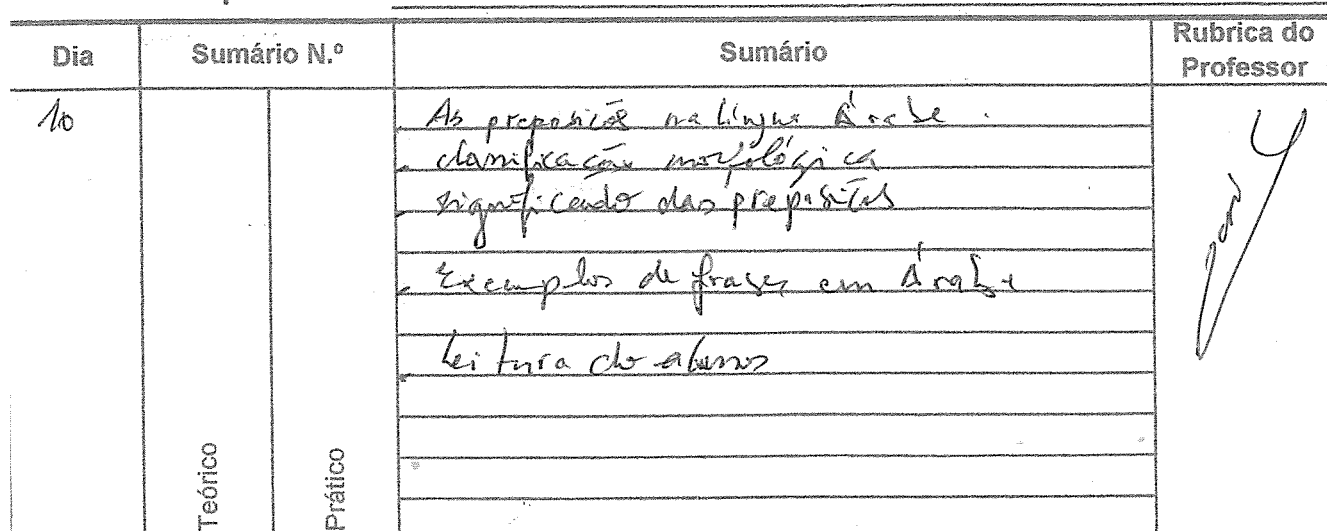 Dia
Sumário N.º
Sumário
Rubrica do
Professor
10
As preposições na língua Árabe.
. classificação morfológica
. significado das preposições
. Exemplos de frases em Árabe
. Leitura do alunos
Teórico
Prático